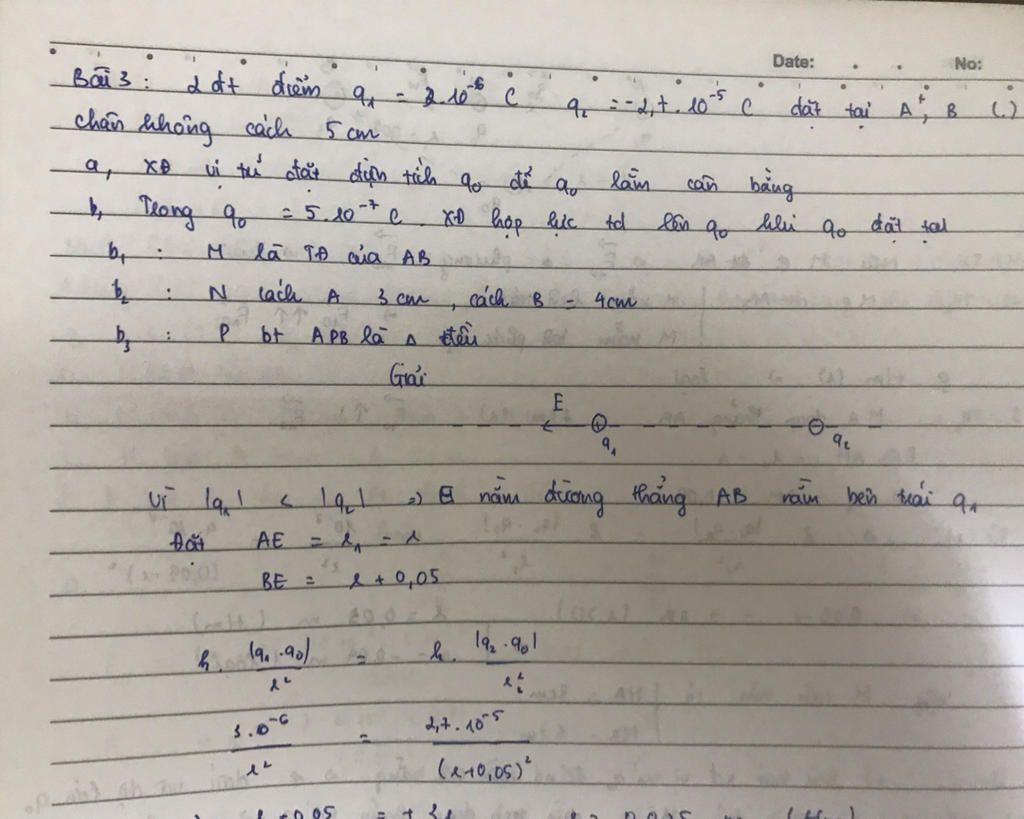 Date: No:
Bài 3 : 2 đt điểm q₁ = 3.10⁻⁶ C q₂ = -2,7.10⁻⁵ C đặt tại A, B (.)
chân không cách 5 cm
a, XĐ vị trí đặt điện tích q₀ để q₀ nằm cân bằng
b, Trong q₀ = 5.10⁻⁷ C. XĐ hợp lực td lên q₀ khi q₀ đặt tại
b₁ : M là TĐ của AB
b₂ : N cách A 3 cm, cách B = 4cm
b₃ : P bt APB là Δ đều
Giải
E
q₁ q₂
Vì |q₁| < |q₂| => E nằm đường thẳng AB nằm bên trái q₁
Đặt AE = r₁ = r
BE = r + 0,05
k. |q₁.q₀| / r² = k. |q₂.q₀| / r₂²
3.10⁻⁶ / r² = 2,7.10⁻⁵ / (r+0,05)²